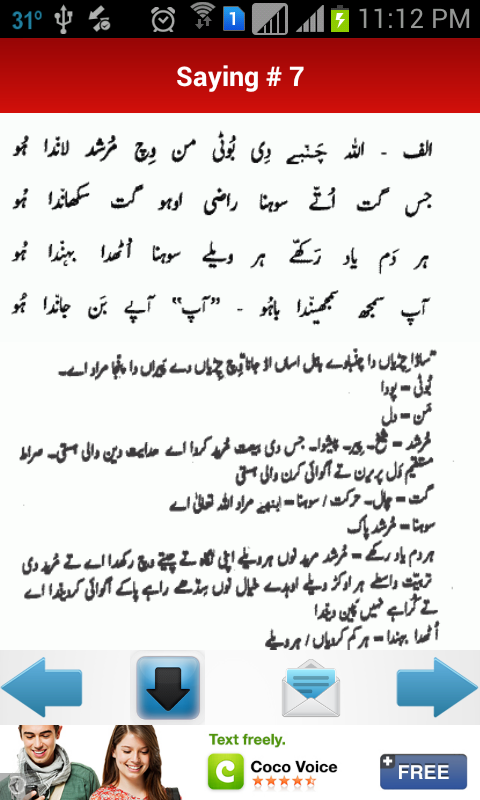 31° 1 11:12 PM
Saying # 7
الف - اللہ چَنبے دِی بُوٹی من وِچ مُرشد لاندا ہُو
جس گت اُتّے سوہنا راضی اوہو گت سکھاندا ہُو
ہر دَم یاد رَکھّے ہر ویلے سوہنا اُٹھدا بہندا ہُو
آپ سمجھ سمجھیندا باہُو - "آپ" آپے بَن جاندا ہُو
"ساڈا چڑیاں دا چنبا وے بابل اساں اڈ جانا" وِچ چڑیاں دے پیراں دا پنجا مراد اے۔
بُوٹی = پودا
مَن = دل
مُرشد = شیخ۔ پیر۔ پیشوا۔ جس دی بیعت مُرید کردا اے ھدایت دین والی ہستی۔ صراط
مستقیم وَل پریرن تے اگوائی کرن والی ہستی
گت = چال۔ حرکت / سوہنا = ایتھے مراد اللہ تعالیٰ اے
سوہنا = مُرشد پاک
ہر دم یاد رکھے = مُرشد مرید نوں ہر ویلے اپنی نگاہ تے چیتے وچ رکھدا اے تے مُرید دی
تربیّت واسطے ہر اوکڑ ویلے اوہدے خیال نوں سِدّھے راہے پا کے اگوائی کردا اے
تے گمراہ نہیں ہون دیندا
اُٹھدا بہندا = ہر کم کردیاں / ہر ویلے
Text freely.
Coco Voice
FREE